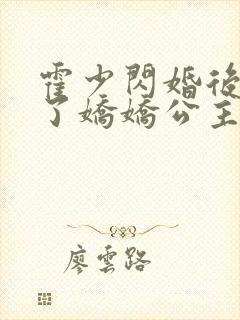 霍少閃婚後
了嬌嬌公主
廖雲路